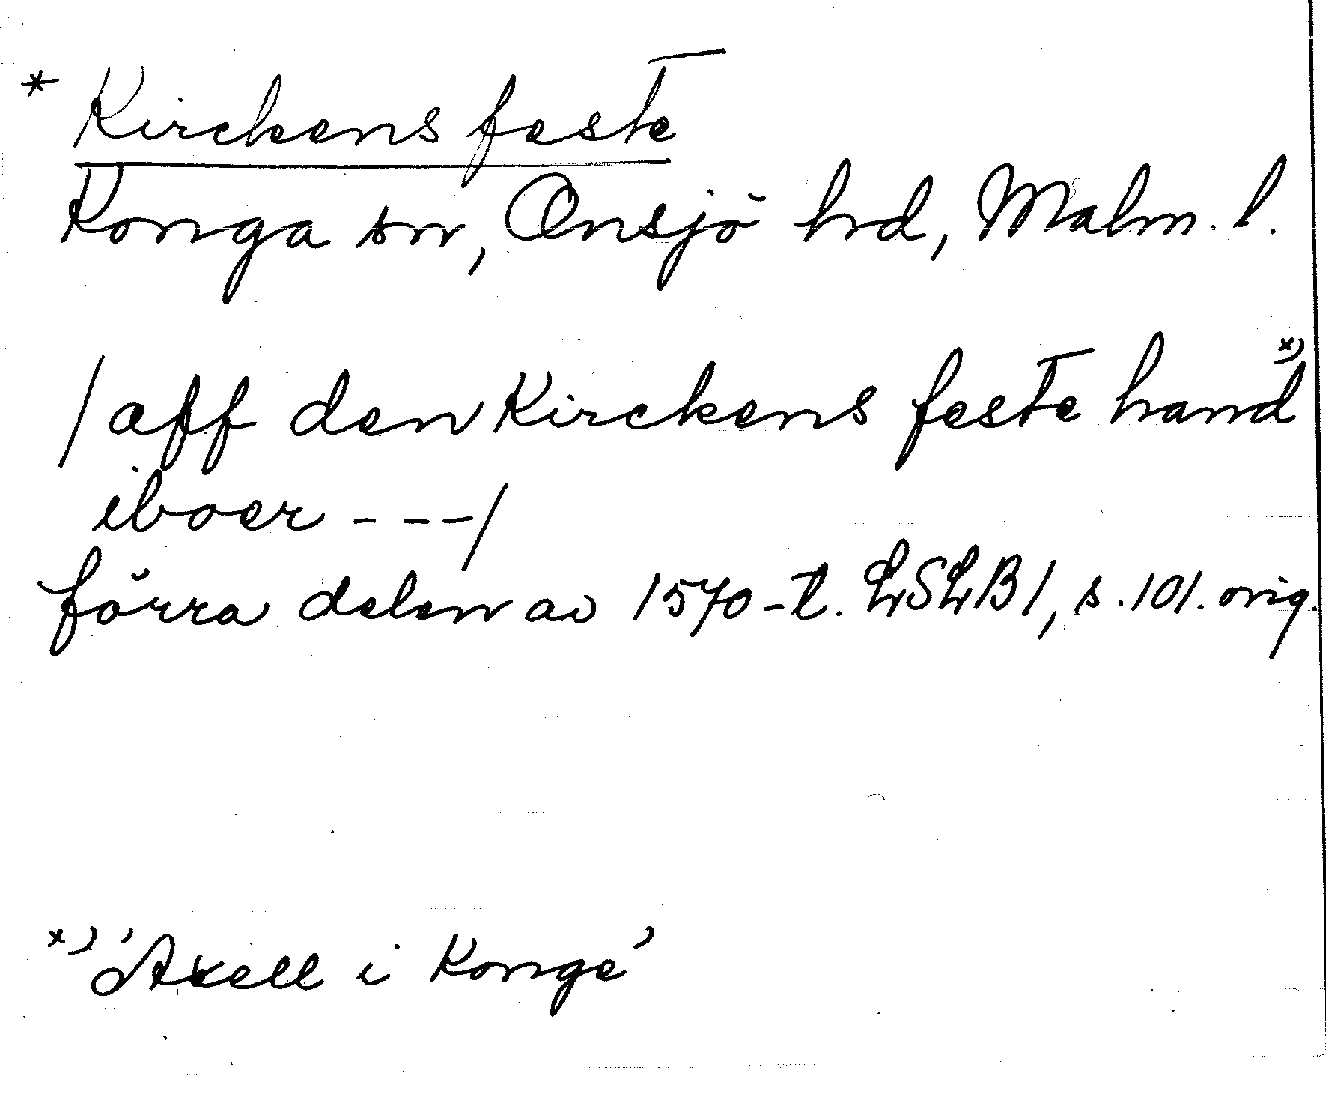 * Kirckens feste
Konga sn, Onsjö hd, Malm. l.
/ aff den Kirckens feste hand x)
iboer - - - /
förra delen av 1570-t. LSLB 1, s. 101. orig.
x) 'Axell i Konge'